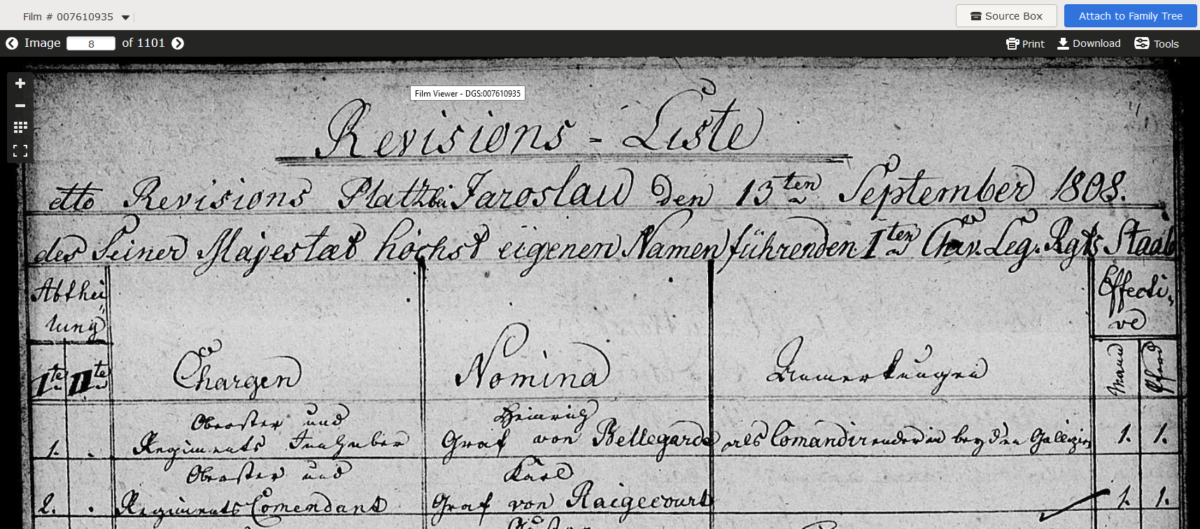 Film # 007610935
Source Box
Attach to Family Tree
Image 8 of 1101
Print
Download
Tools
Film Viewer - DGS:007610935
Revisions - Liste
etto Revisions Platz bei Jaroslau den 13ten September 1808.
des Seiner Majestæt höchst eigenen Namen führenden Iten Chev. Leg. Rgts Staab
Abthei,
lung
Effecti,
ve
Ite
IIte
Chargen
Nomina
Anmerkungen
Mann
Pferd
Oberster und
Regiments Innhaber
Heinrich
Graf von Bellegarde
als Comandirender in beyden Galizien
1. . 1. 1.
Oberster und
Regiments Comendant
Karl
Graf von Raigecourt
2. . 1. 1.